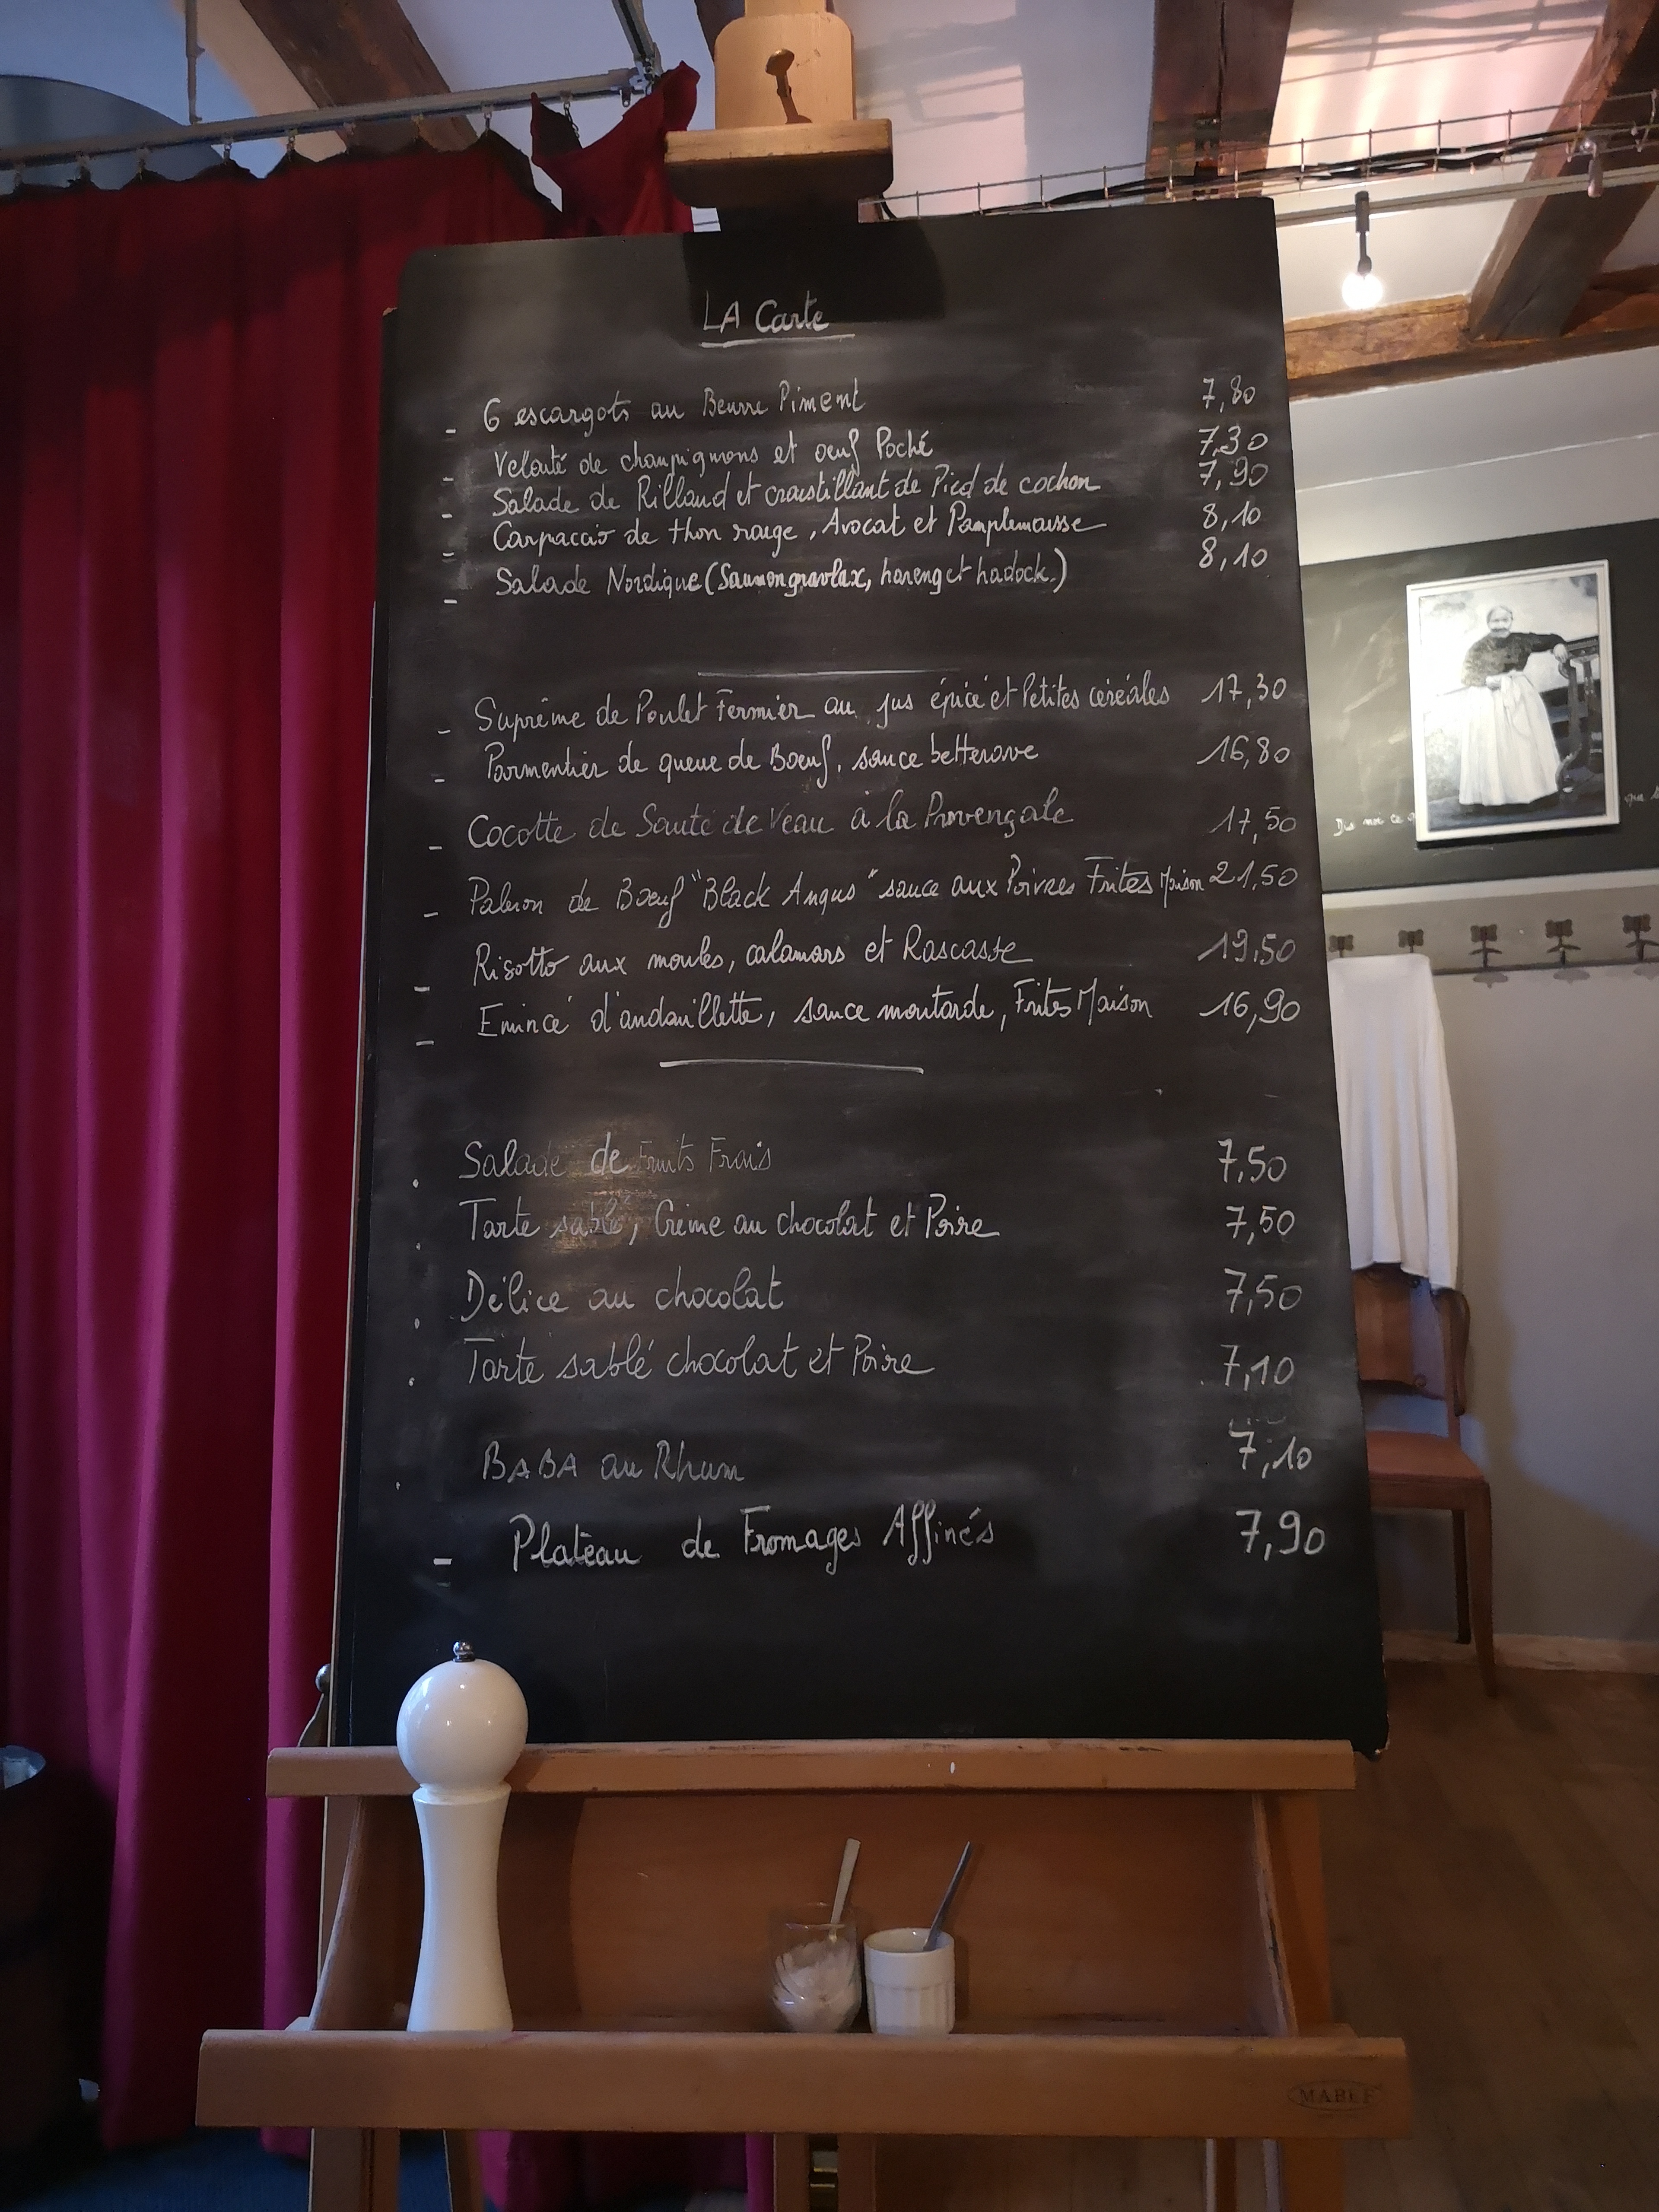 LA Carte
- 6 escargots au Beurre Piment 7,80
- Velouté de champignons et oeuf Poché 7,30
- Salade de Rillaud et croustillant de Pied de cochon 7,90
- Carpaccio de thon rouge, Avocat et Pamplemousse 8,10
- Salade Nordique (Saumon gravlax, hareng et hadock.) 8,10
- Suprême de Poulet Fermier au jus épicé et Petites céréales 17,30
- Parmentier de queue de Boeuf, sauce betterave 16,80
- Cocotte de Sauté de Veau à la Provençale 17,50
- Paleron de Boeuf "Black Angus" sauce aux Poivres Frites Maison 21,50
- Risotto aux moules, calamars et Rascasse 19,50
- Emincé d'andouillette, sauce moutarde, Frites Maison 16,90
. Salade de Fruits Frais 7,50
. Tarte sablé, Crème au chocolat et Poire 7,50
. Délice au chocolat 7,50
. Tarte sablé chocolat et Poire 7,10
. BABA au Rhum 7,10
- Plateau de Fromages Affinés 7,90
MABEF